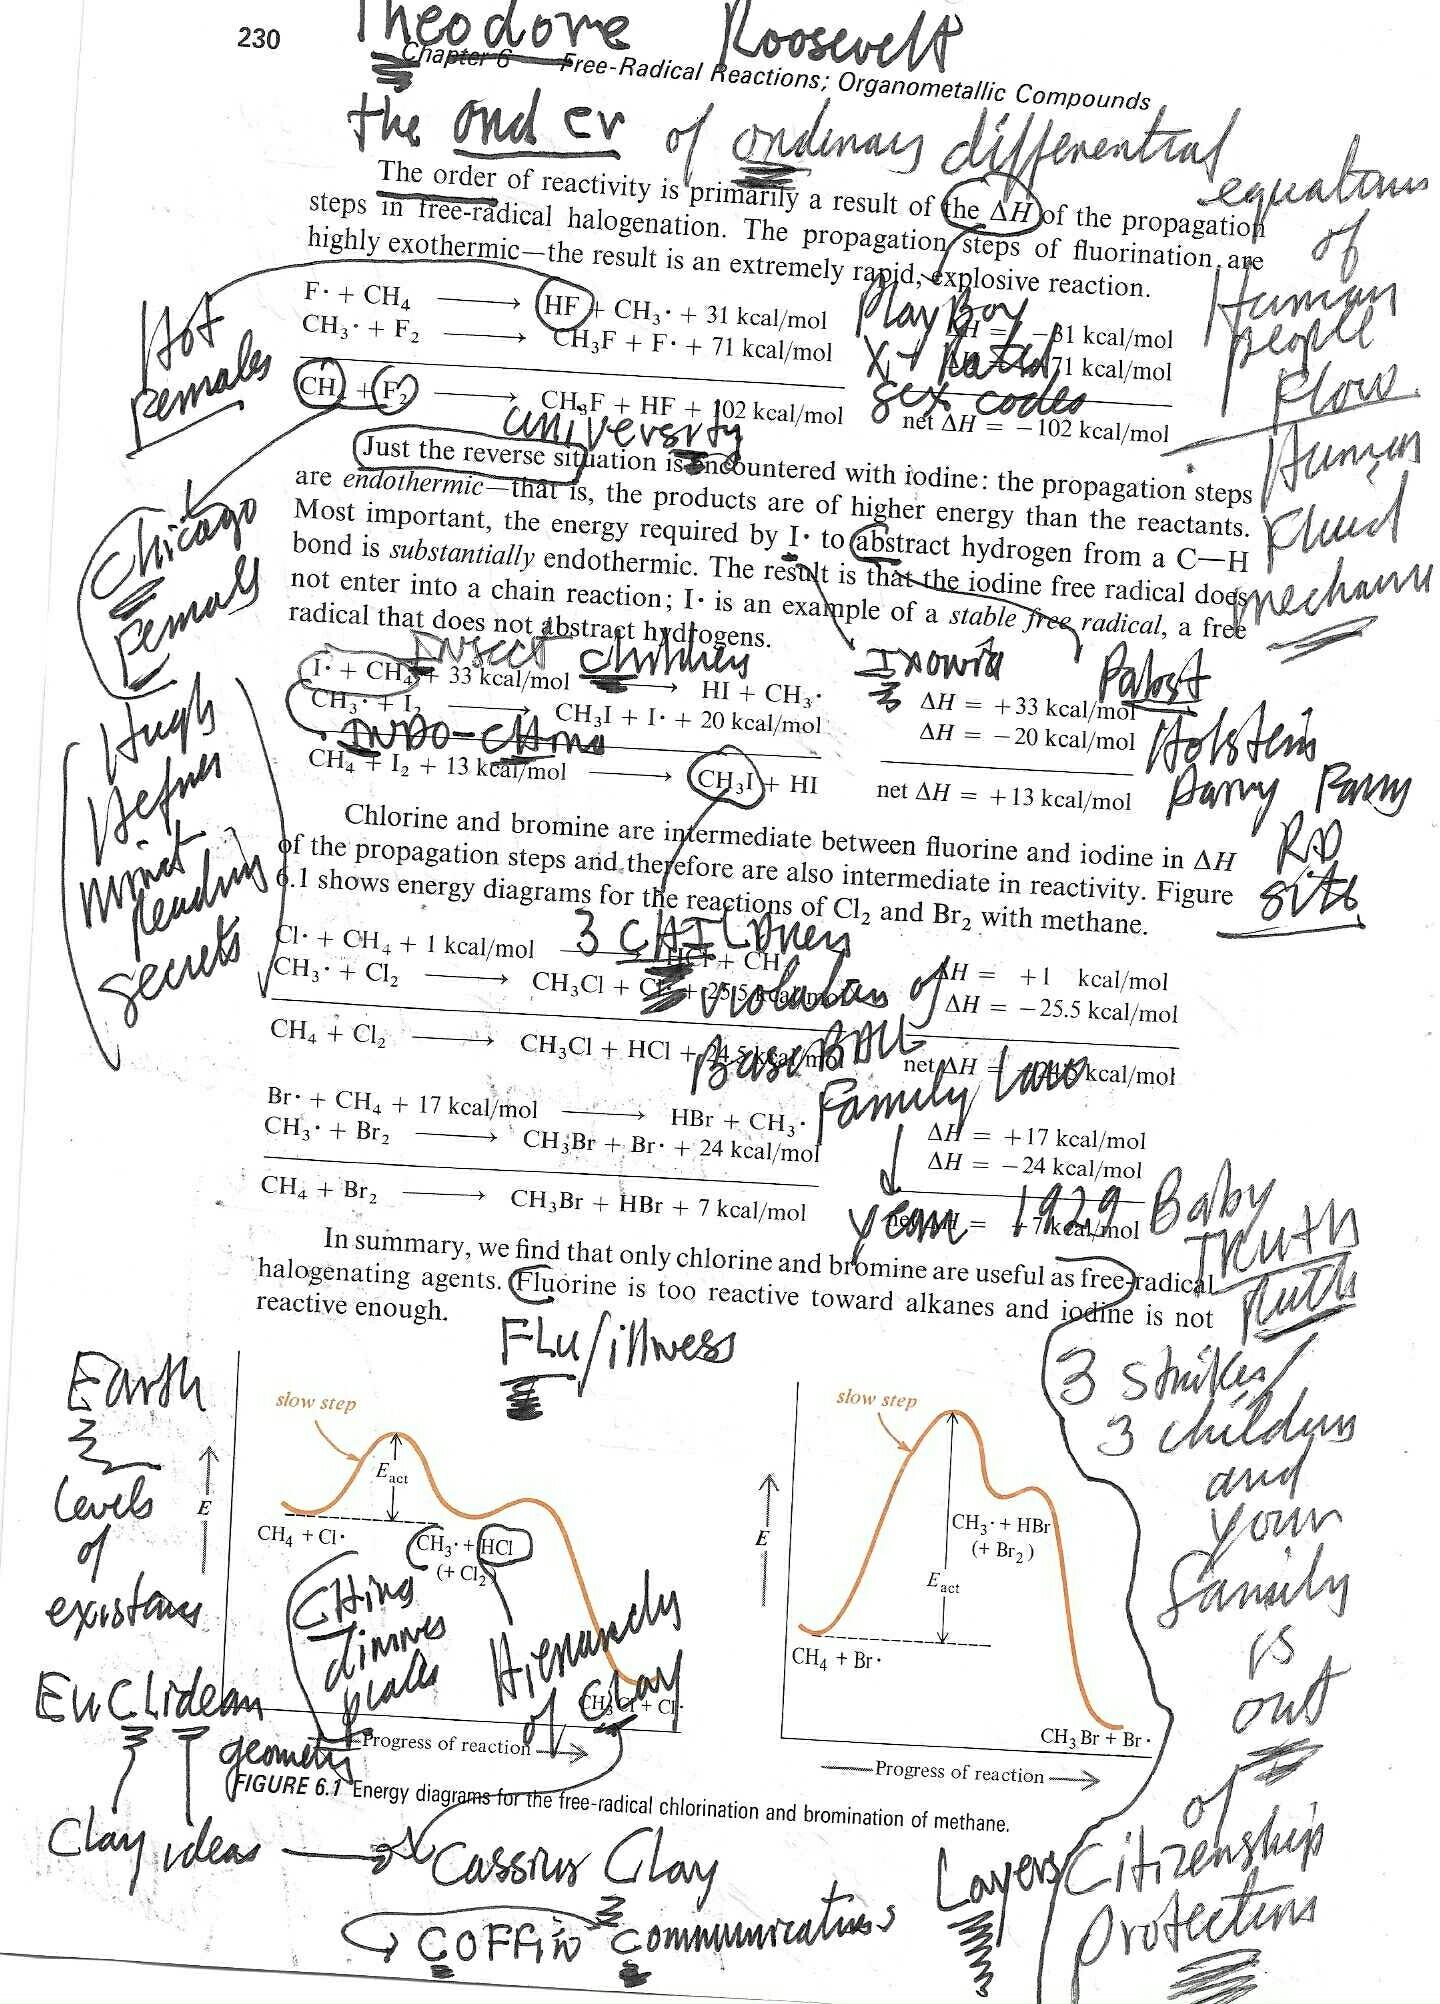 Theodore Roosevelt
230
Chapter 6 Free-Radical Reactions; Organometallic Compounds
the ond er of ondinary differential
equations
of
Human
people
Flows
Human
Fluid
mechanics
The order of reactivity is primarily a result of the ΔH of the propagation
steps in free-radical halogenation. The propagation steps of fluorination are
highly exothermic—the result is an extremely rapid, explosive reaction.
Hot
Females
F· + CH₄ ⟶ HF + CH₃· + 31 kcal/mol ΔH = −31 kcal/mol
CH₃· + F₂ ⟶ CH₃F + F· + 71 kcal/mol 71 kcal/mol
PlayBoy
X-rated
sex codes
CH₄ + F₂ ⟶ CH₃F + HF + 102 kcal/mol net ΔH = −102 kcal/mol
university
Just the reverse situation is encountered with iodine: the propagation steps
are endothermic—that is, the products are of higher energy than the reactants.
Most important, the energy required by I· to abstract hydrogen from a C—H
bond is substantially endothermic. The result is that the iodine free radical does
not enter into a chain reaction; I· is an example of a stable free radical, a free
radical that does not abstract hydrogens.
Chicago
Females
Insect children
I· + CH₄ + 33 kcal/mol ⟶ HI + CH₃· ΔH = +33 kcal/mol
CH₃· + I₂ ⟶ CH₃I + I· + 20 kcal/mol ΔH = −20 kcal/mol
INDO-CHina
CH₄ + I₂ + 13 kcal/mol ⟶ CH₃I + HI net ΔH = +13 kcal/mol
Pabst
Holstein
R.D
site
Hugh
Hefner
mind
Reading
secrets
Chlorine and bromine are intermediate between fluorine and iodine in ΔH
of the propagation steps and therefore are also intermediate in reactivity. Figure
6.1 shows energy diagrams for the reactions of Cl₂ and Br₂ with methane.
Cl· + CH₄ + 1 kcal/mol ⟶ HCl + CH₃· ΔH = +1 kcal/mol
CH₃· + Cl₂ ⟶ CH₃Cl + Cl· + 25.5 kcal/mol ΔH = −25.5 kcal/mol
3 CHILDren
violation of
BaseBALL
Family Law
CH₄ + Cl₂ ⟶ CH₃Cl + HCl + 24.5 kcal/mol net ΔH = −24.5 kcal/mol
Br· + CH₄ + 17 kcal/mol ⟶ HBr + CH₃· ΔH = +17 kcal/mol
CH₃· + Br₂ ⟶ CH₃Br + Br· + 24 kcal/mol ΔH = −24 kcal/mol
CH₄ + Br₂ ⟶ CH₃Br + HBr + 7 kcal/mol net ΔH = −7 kcal/mol
year 1929 Baby
TRUTH
Ruth
In summary, we find that only chlorine and bromine are useful as free-radical
halogenating agents. Fluorine is too reactive toward alkanes and iodine is not
reactive enough.
FLu/illness
3 strikes/
3 children
and
your
family
is
out
of
Citizenship
protections
Earth
levels
of
existans
slow step
E_act
E
CH₄ + Cl·
CH₃· + HCl
(+ Cl₂)
CH₃Cl + Cl·
Progress of reaction
slow step
E
E_act
CH₃· + HBr
(+ Br₂)
CH₄ + Br·
CH₃Br + Br·
Progress of reaction
CHina
dinner
plates
Hierarchy
of Clay
EuCLidean
geometry
FIGURE 6.1 Energy diagrams for the free-radical chlorination and bromination of methane.
Clay ideas
Cassius Clay
Layers
COFFin Communications